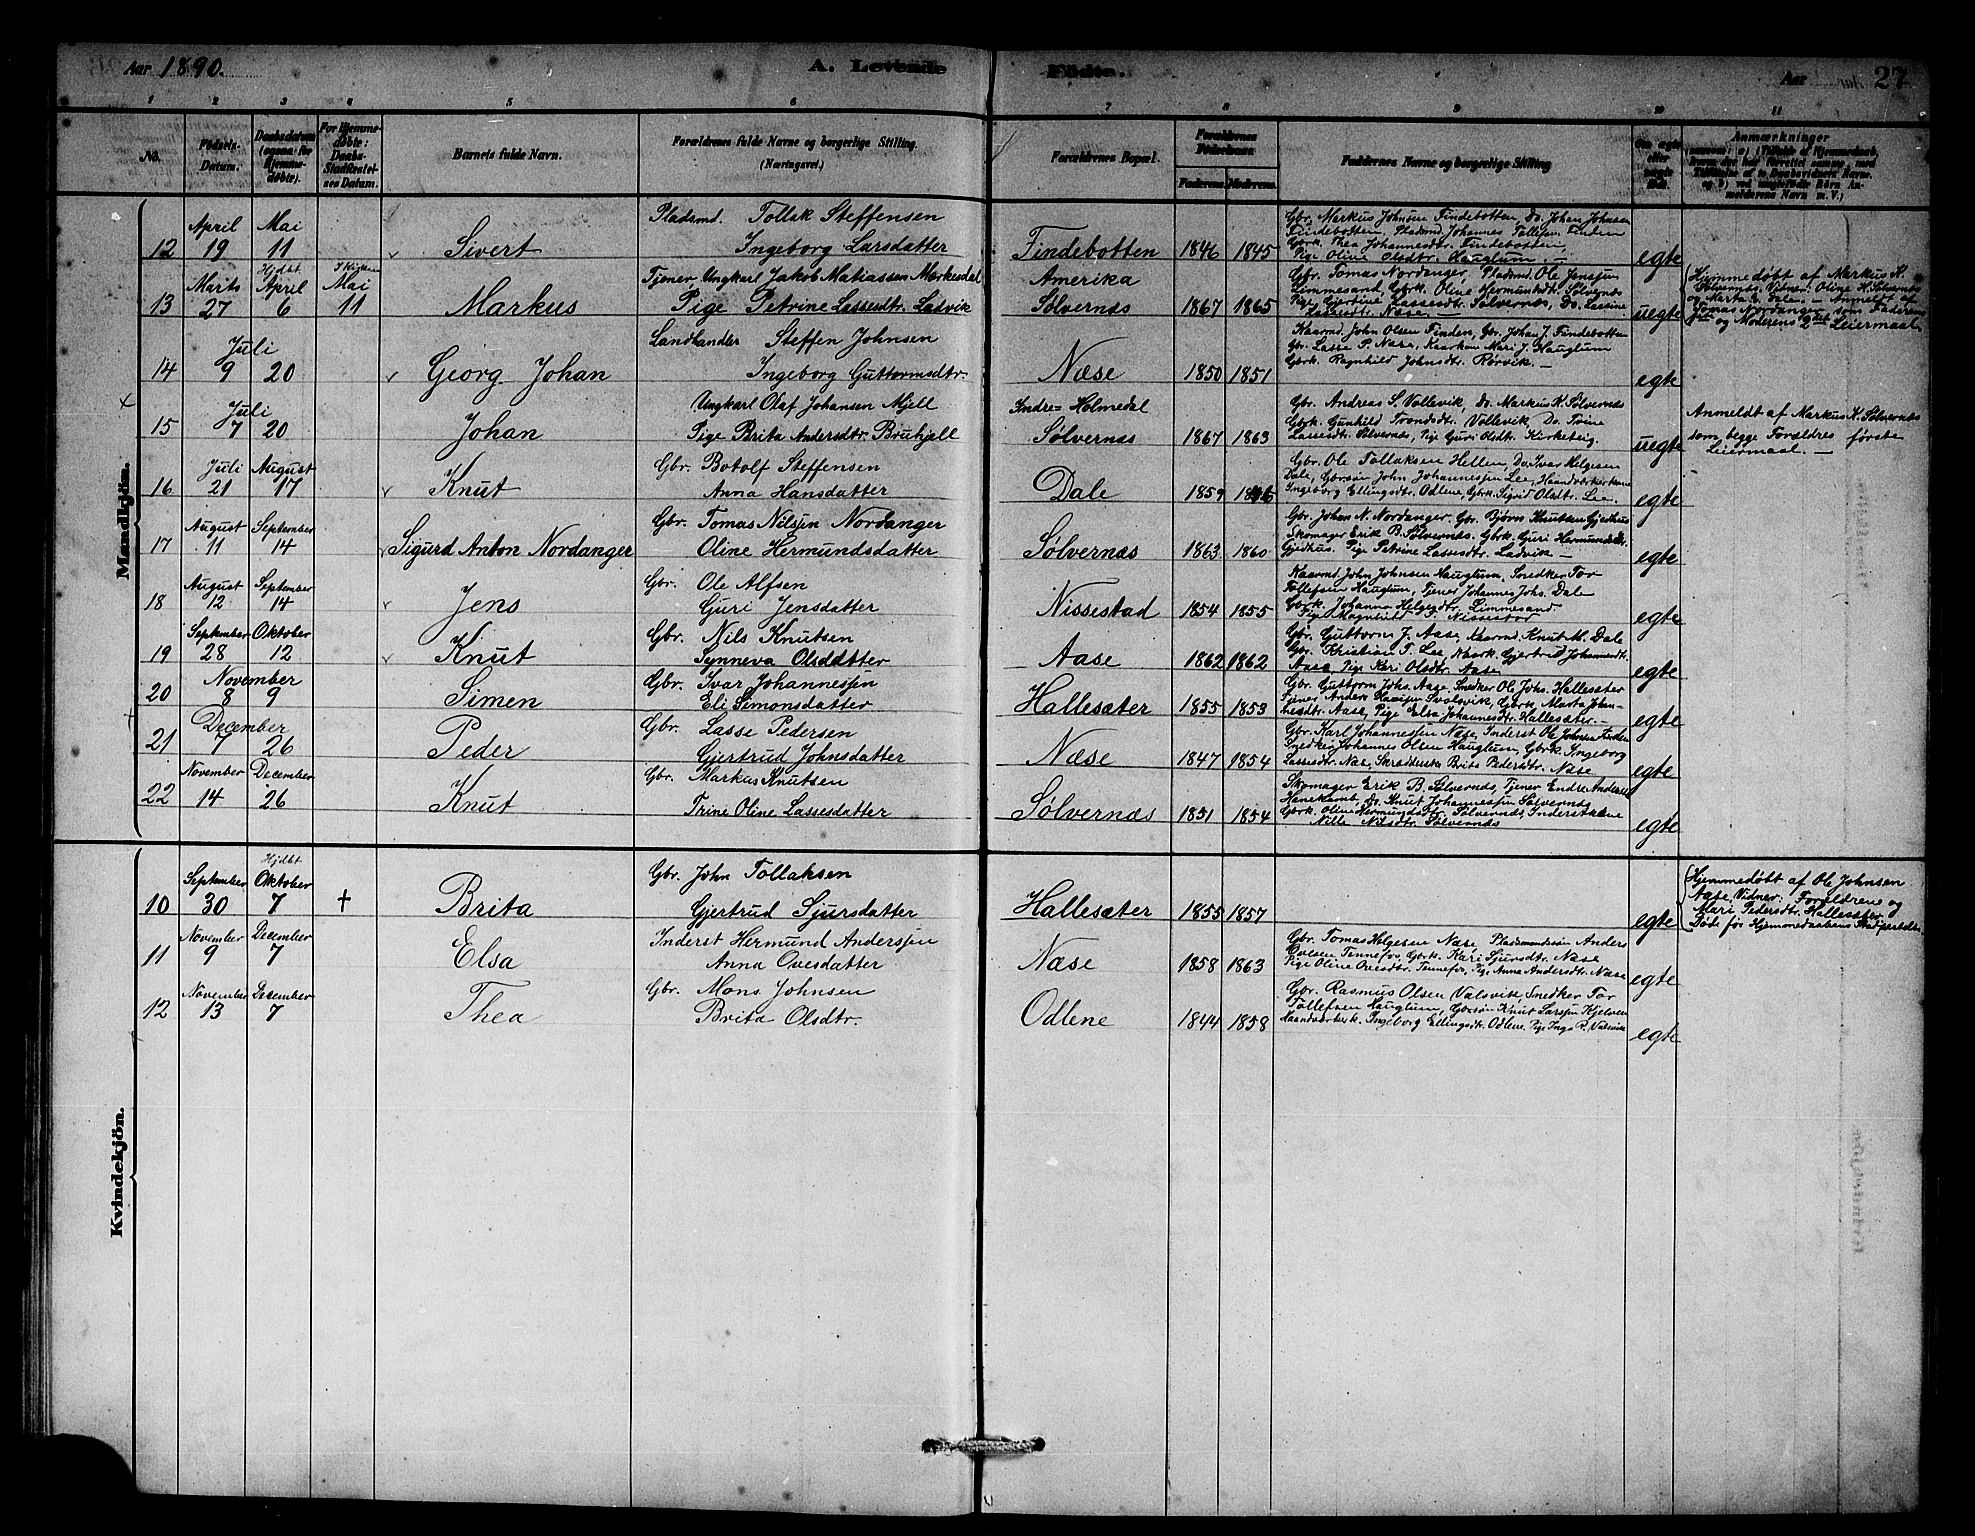 Aar 1890.
A. Levende Födte.
Aar 27
1 2 3 4 5 6 7 8 9 10 11
No.
Födsels-Datum.
Daabsdatum (ogsaa for Hjemme-døbte).
For Hjemme-døbte: Daabs-Stadfæstel-ses Datum.
Barnets fulde Navn.
Forældrenes fulde Navne og borgerlige Stilling.
(Næringsvei.)
Forældrenes Bopæl.
Forældrenes Födselsaar.
Faderens. Moderens.
Faddernes Navne og borgerlige Stilling
Om ægte eller uægte født.
Anmærkninger
Mandkjön.
12
April 19
Mai 11
Sivert
Pladsmd. Tollak Steffensen
Ingeborg Larsdatter
Findebotten
1846 1845
Gbr. Markus Johnsen Findebotten, Do. Johan Johnsen
Findebotten, Pladsmd. Johannes Tollefsn. Finden
Gbrk. Thea Johannesdtr. Findebotten,
Pige Oline Olsdtr. Hauglum. —
egte
13
Marts 27
Hjdbt April 6
I Kirken Mai 11
Markus
Tjener, Ungkarl Jakob Matiassen Markesdal
Pige Petrine Lassesdtr. Ladvik
Amerika
Sølvernæs
1867 1865
Gbr. Tomas Nordanger, Pladsmd. Ole Jenssen
Limmesand, Gbrk. Oline Hermundsdt. Sølvernæs
Pige Gjertine Lassesdtr. Sølvernæs, Do. Lassine
Lassesdtr. Næse. —
uegte
Hjemmedøbt af Markus K.
Sølvernæs. Vidner: Oline H. Sølvernæs
og Marta Dale. — Anmeldt af
Tomas Nordanger som Faderens
1ste og Moderens 2det Leiermaal.
14
Juli
9 20
Georg Johan
Landhandler Steffen Johnsen
Ingeborg Guttormsdtr.
Næse
1850 1851
Kaarmd. John Olsen Finden, Gbr. Johan J. Findebotten
Gbr. Lasse P. Næse, Kaarkone Mari J. Hauglum
Gbrk. Ragnhild Johnsdtr. Rørvik. —
egte
15
Juli
7 20
Johan
Ungkarl Olaf Johansen Mjell
Pige Brita Andersdtr. Bruhjell
Indre= Holmedal
Sølvernæs
1867 1863
Gbr. Andreas S. Vollevik, do. Markus K. Sølvernæs
Gbrk. Gunhild Trondsdtr. Vollevik, Do. Trine
Lassesdtr. Sølvernæs, Pige Guri Olsdtr. Kirketeig.
uegte
Anmeldt af Markus K. Sølvernæs
som begge Forældres første
Leiermaal. —
16
Juli 21
August 17
Knut
Gbr. Botolf Steffensen
Anna Hansdatter
Dale
1859
Gbr. Ole Tollaksen Hellen, Do. Ivar Helgesen
Dale, Gbrsøn John Johannessen Lee, Haandverkerkone
Ingeborg Ellingsdtr. Odlene, Gbrk. Sigrid Olsdtr. Lee.
egte
17
August 11
September 14
Sigurd Anton Nordanger
Gbr. Tomas Nilssen Nordanger
Oline Hermundsdatter
Sølvernæs
1863 1860
Gbr. Johan N. Nordanger. Gbr. Bjørn Knutsen Gjedhus
Skomager Erik B. Sølvernæs. Gbrk. Guri Hermundsdtr.
Gjedhus. Pige Petrine Lassesdtr. Ladvik —
egte
18
August 12
September 14
Jens
Gbr. Ole Alfsen
Guri Jensdatter
Nissestad
1854 1855
Kaarmd. John Johnsen Hauglum, Snedker Tor
Tollefsen Hauglum, Tjener Johannes Johs. Dale
Gbrk. Johanna Helgesdtr. Limmesand
Pige Magnhild
egte
19
September 28
Oktober 12
Knut
Gbr. Nils Knutsen
Synneva Olsdatter
Aase
1862 1862
Gbr. Guttorm J. Aase, Kaarmd. Knut M. Dale
Gbr. Kristian T. Lee, Gjertrud Johannesdtr.
Aase, Pige Kari Olsdtr. Aase.
egte
20
November
8 9
Simen
Gbr. Ivar Johannessen
Eli Simonsdatter
Hallesæter
1855 1853
Gbr. Guttorm Johs. Aase, Snedker Ole Johs. Hallesæter
Tjener Anders Svolsvik, Gbrk. Marta Johan-
nesdtr. Aase, Pige Elsa Johannesdtr. Hallesæter. —
egte
21
December
7 26
Peder
Gbr. Lasse Pedersen
Gjertrud Johnsdatter
Næse
1847 1854
Gbr. Karl Johannessen Næse, Inderst Ole Johnsen Finden
Snedker Johannes Olsen Hauglum, Gbrk. Ingeborg
Lassesdtr. Næse, Brita Pedersdtr. Næse
egte
22
November 14
December 26
Knut
Gbr. Markus Knutsen
Trine Oline Lassesdatter
Sølvernæs
1851 1854
Skomager Erik B. Sølvernæs, Tjener Endre Andersen
Hanekamb, Do. Knut Johannessen Sølvernæs
Gbrk. Oline Hermundsdtr. Sølvernæs, Inderstkone
Nille Nilsdtr. Sølvernæs
egte
Kvindekjön.
10
September 30
Hjdbt Oktober 7
†
Brita
Gbr. John Tollaksen
Gjertrud Sjursdatter
Hallesæter
1855 1857
egte
Hjemmedøbt af Ole Johnsen
Næse, Vidner: Forældrene og
Mari Pedersdtr. Hallesæter.
Døde før Hjemmedaabens
11
November 9
December 7
Elsa
Inderst Hermund Anderssen
Anna Ovesdatter
Næse
1858 1863
Gbr. Tomas Helgesen Næse, Pladsmandssøn Anders
Ovesen Tennefos, Gbrk. Kari Sjursdtr. Næse
Pige Oline Ovesdtr. Tennefos, Pige Anna Andersdtr. Næse
egte
12
November 13
December 7
Thea
Gbr. Mons Johnsen
Brita Olsdtr.
Odlene
1844 1858
Gbr. Rasmus Olsen Valsvik, Snedker Tor
Tollefsen Hauglum, Gbrsøn Knut Larssen Hjelven
Haandverkerk. Ingeborg Ellingsdt. Odlene, Pige Inga R. Valsvik
egte